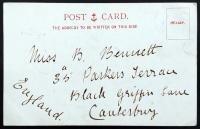 POST CARD.
THE ADDRESS TO BE WRITTEN ON THIS SIDE
Miss B. Bennett
35a Parkers Terrace
Black Griffin Lane
Canterbury
England.